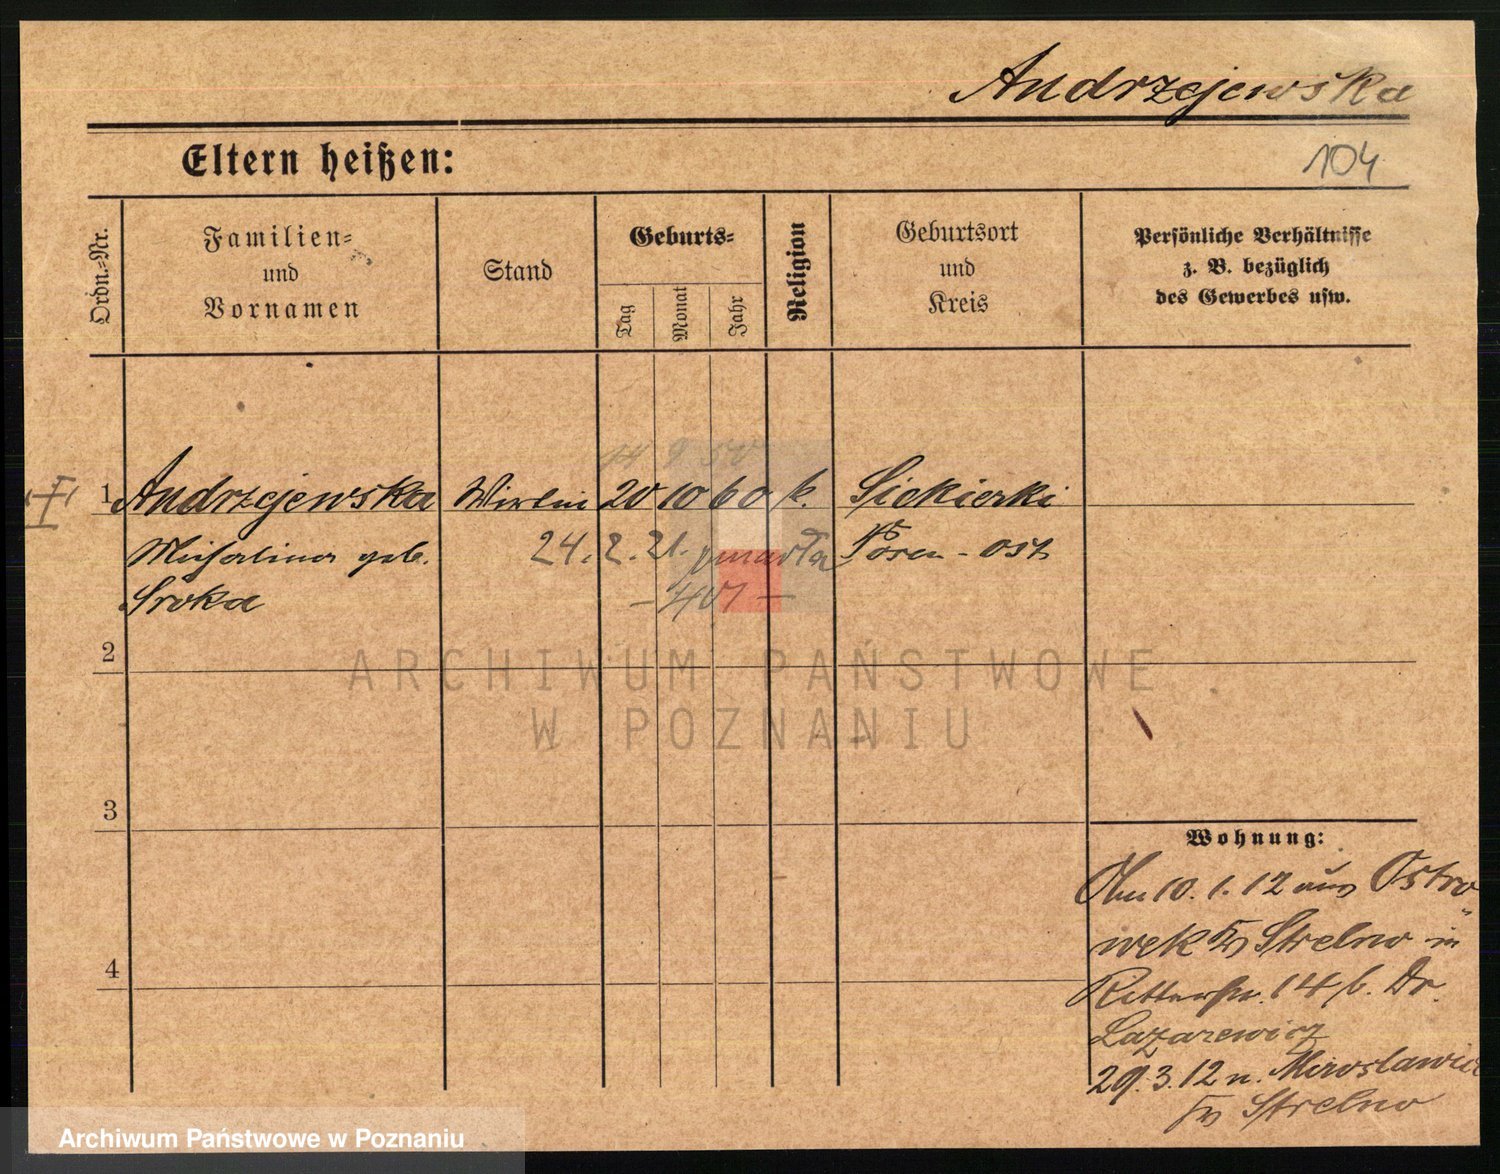 Andrzejewska
Eltern heißen:
104
Ordn.-Nr.
Familien-
und
Vornamen
Stand
Geburts-
Tag
Monat
Jahr
Religion
Geburtsort
und
Kreis
Persönliche Verhältnisse
z. B. bezüglich
des Gewerbes usw.
1 Andrzejewska Wirtin 20 10 60 k. Siekierki
Michalina geb. 24. 2. 21. zmarła Posen-Ost
Sroka
2
ARCHIWUM PAŃSTWOWE
W POZNANIU
3
Wohnung:
Am 10. 1. 12 aus Ostro-
wek Kr Strelno in
Ritterstr. 14 b. Dr.
Lazarewicz
4
29. 3. 12 n. Miroslawice
Kr Strelno
Archiwum Państwowe w Poznaniu